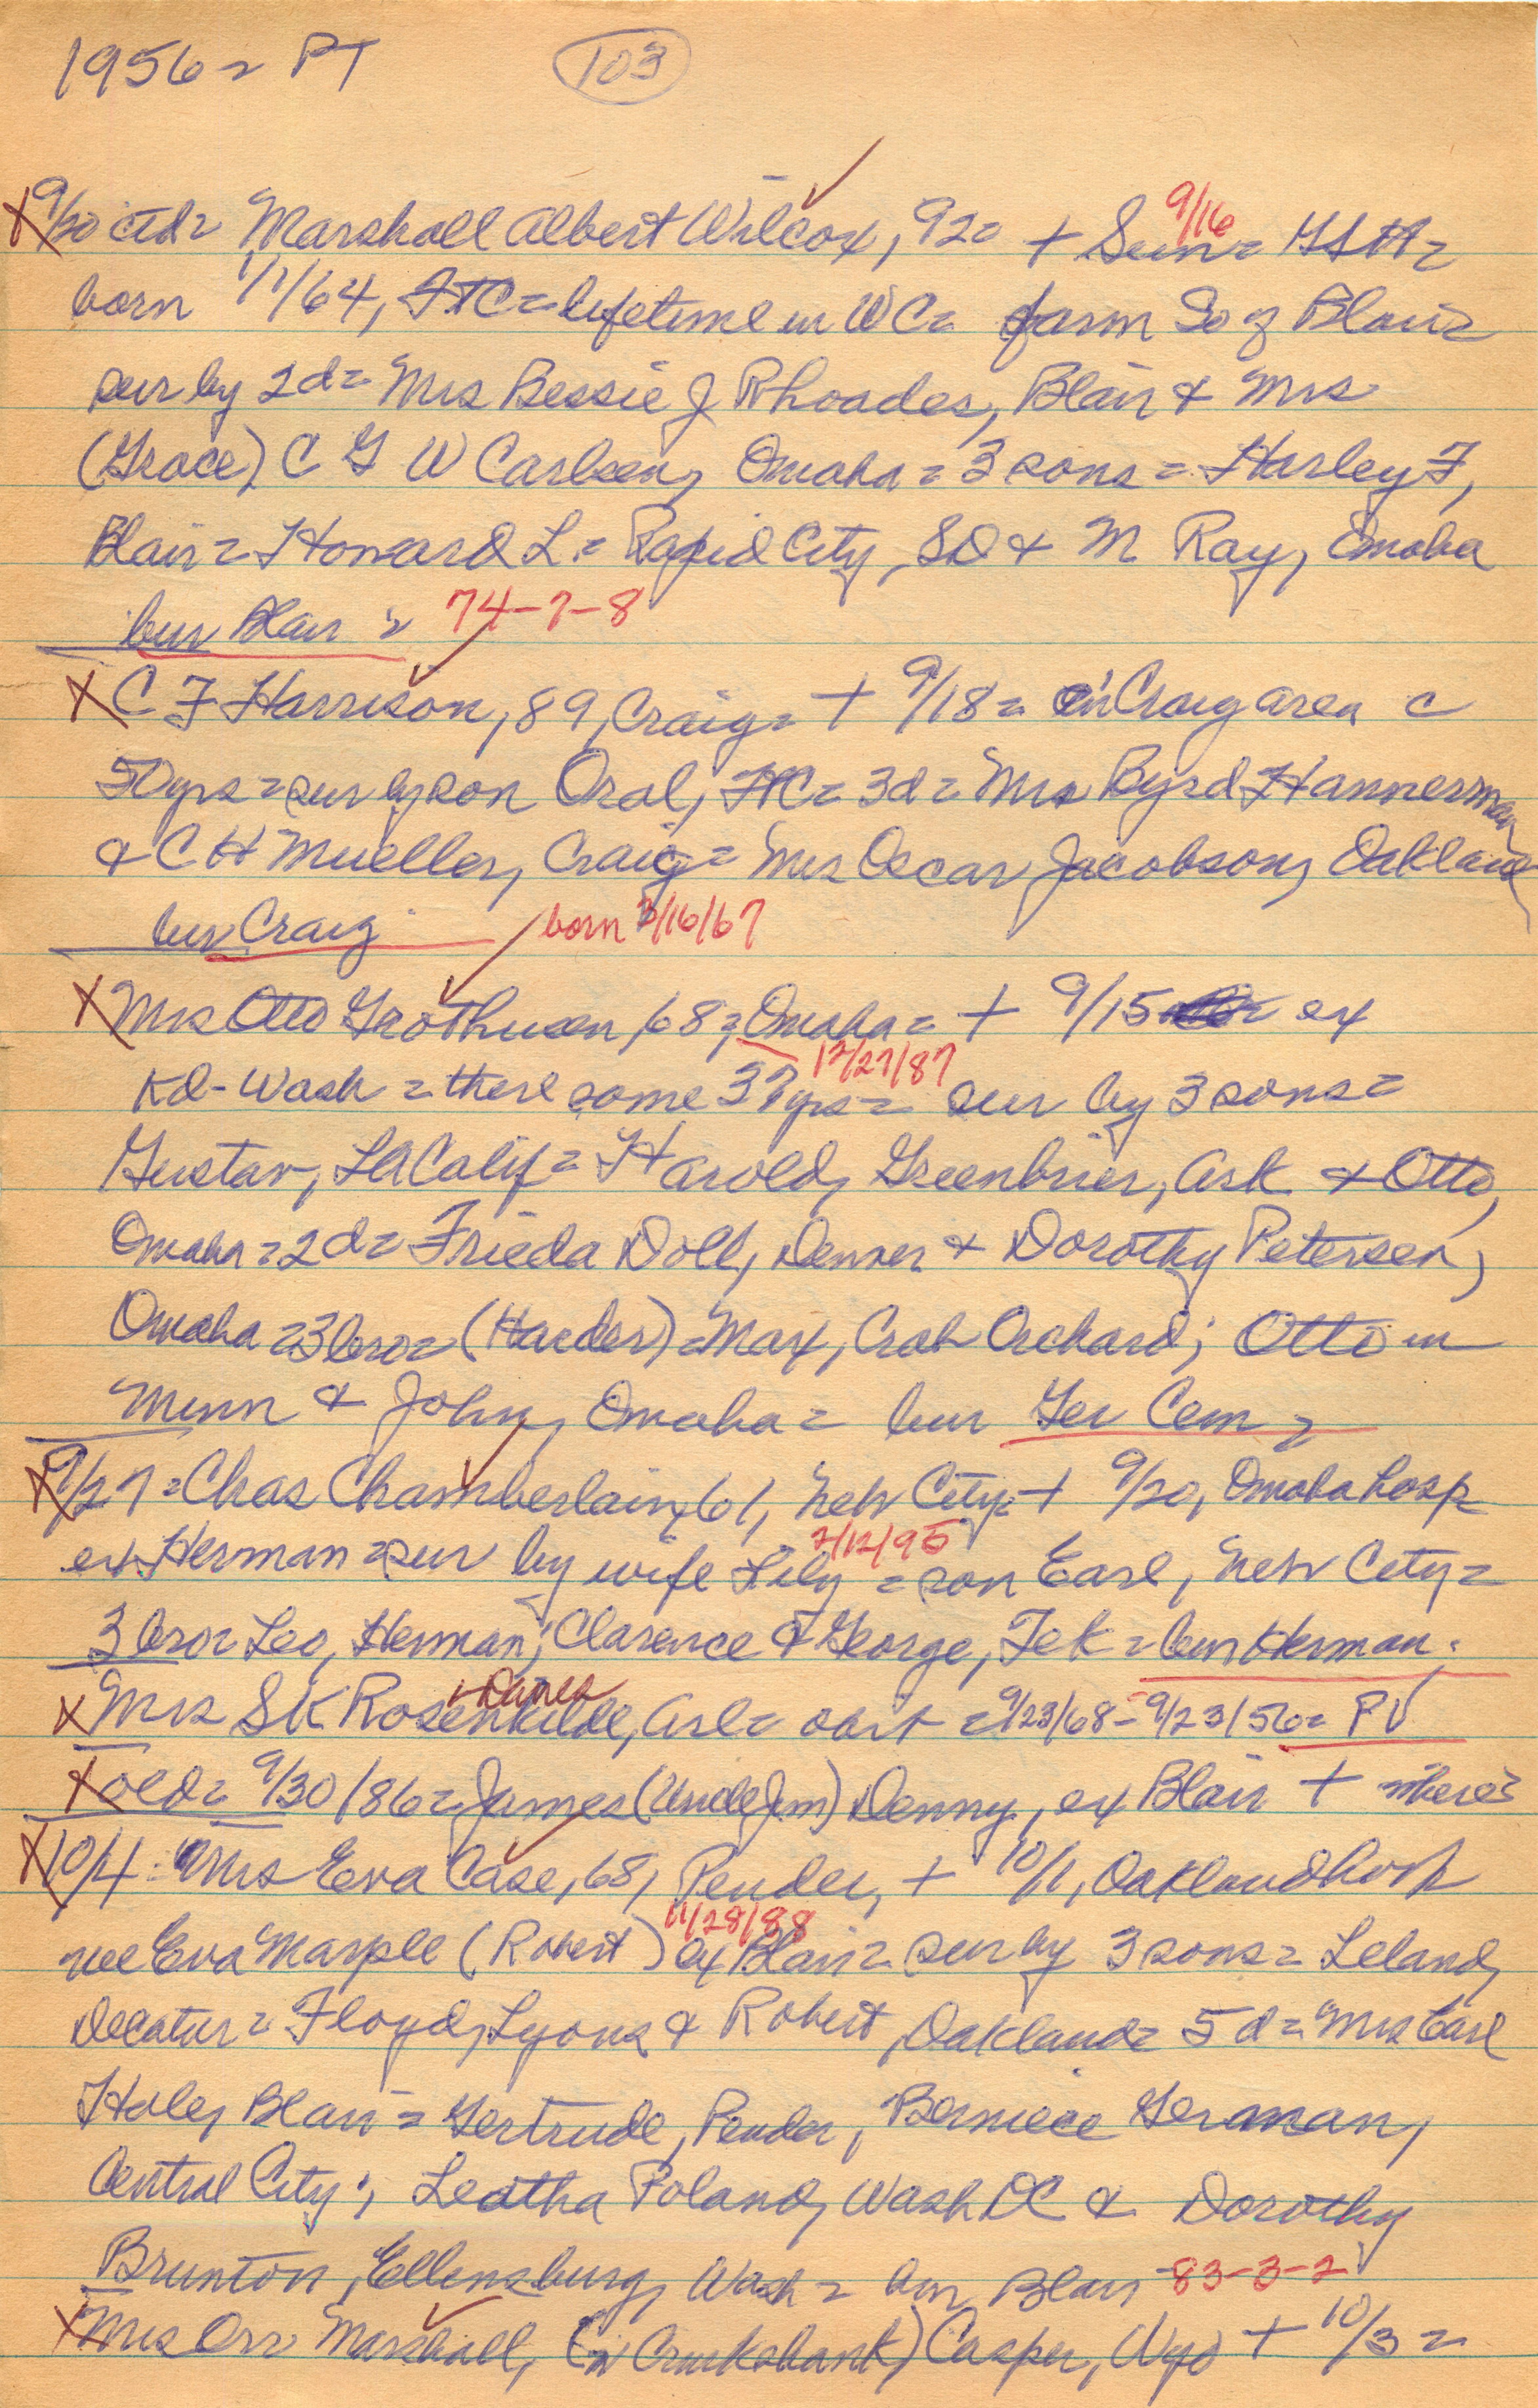 1956 = PT 103
9/20 ctd = Marshall Albert Wilcox, 92 = + Sun 9/16 =
born 1/1/64, = lifetime in WC = farm So of Blair =
sur by 2 d = Mrs Bessie J Rhoades, Blair & Mrs
(Grace) C G W Carlsen, Omaha = 3 sons = Harley F,
Blair = Howard L. = Rapid City, SD & M Ray, Omaha
bur Blair = 74-7-8
C F Harrison, 89, Craig = + 9/18 = in Craig area c
50 yrs = sur by son Oral, = 3 d = Mrs Byrd Hannerman
& C H Mueller, Craig = Mrs Oscar Jacobson, Oakland
bur Craig born /16/67
Mrs Otto Grothusen, 68, Omaha = + 9/15 ex
Kd-Wash = there some 37 yrs = 12/27/87 sur by 3 sons =
Gustav, LA Calif = Harold, Greenbrier, Ark & Otto,
Omaha = 2 d = Frieda Doll, Denver & Dorothy Petersen,
Omaha = 3 bro = (Harder) = Max, Crab Orchard; Otto in
Minn & John, Omaha = bur Ger Cem =
9/27 = Chas Chamberlain, 61, Neb City = + 9/20, Omaha hosp
ex Herman = sur by wife Lily 2/12/95 = son Earl, Neb City =
3 bro = Leo, Herman; Clarence & George, Tek = bur Herman.
Mrs S K Rosenkilde, Arl = obit = 9/23/68 - 9/23/56 = PV
old = 9/30/86 = James (Uncle Jim) Denny, ex Blair + where?
10/4 : Mrs Eva Case, 68, Pender, + 10/1, Oakland hosp
nee Eva Marple (Robert) 11/28/88 ex Blair = sur by 3 sons = Leland,
Decatur = Floyd, Lyons & Robert, Oakland = 5 d = Mrs Earl
Hale, Blair = Gertrude, Pender, Berniece German,
Central City; Leatha Poland, Wash DC & Dorothy
Brunton, Ellensburg, Wash = bur Blair 83-3-2
Mrs Orr Marshall, (n Cruikshank) Casper, Wyo + 10/3 =